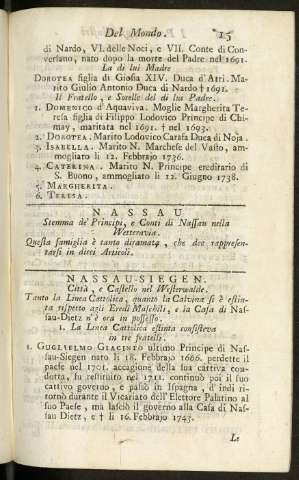 Del Mondo. 15
di Nardo, VI. delle Noci, e VII. Conte di Con-
versano, nato dopo la morte del Padre nel 1691.
La di lui Madre
DOROTEA figlia di Giosia XIV. Duca d'Atri. Ma-
rito Giulio Antonio Duca di Nardo † 1691.
Il Fratello, e Sorelle del di lui Padre.
1. DOMENICO d'Aquaviva. Moglie Margherita Te-
resa figlia di Filippo Lodovico Principe di Chi-
may, maritata nel 1691. † nel 1693.
2. DOROTEA. Marito Lodovico Carafa Duca di Noja.
3. ISABELLA. Marito N. Marchese del Vasto, am-
mogliato li 12. Febbrajo 1736.
4. CATERINA. Marito N. Principe ereditario di
S. Buono, ammogliato li 12. Giugno 1738.
5. MARGHERITA.
6. TERESA.
NASSAU.
Stemma de' Principi, e Conti di Nassau nella
Wetteravia.
Questa famiglia è tanto diramata, che dee rappresen-
tarsi in dieci Articoli.
NASSAU-SIEGEN.
Città, e Castello nel Westerwalde.
Tanto la Linea Cattolica, quanto la Calvina si è estin-
ta rispetto agli Eredi Maschili, e la Casa di Nas-
sau-Dietz n'è ora in possesso.
1. La Linea Cattolica estinta consisteva
in tre fratelli.
1. GUGLIELMO GIACINTO ultimo Principe di Nas-
sau-Siegen nato li 18. Febbrajo 1666. perdette il
paese nel 1701. accagione della sua cattiva con-
dotta, fu restituito nel 1711. continuò poi il suo
cattivo governo, e passò in Ispagna, d'indi ri-
tornò durante il Vicariato dell'Elettore Palatino al
suo Paese, ma lasciò il governo alla Casa di Nas-
sau Dietz, e † li 16. Febbrajo 1743.
Le